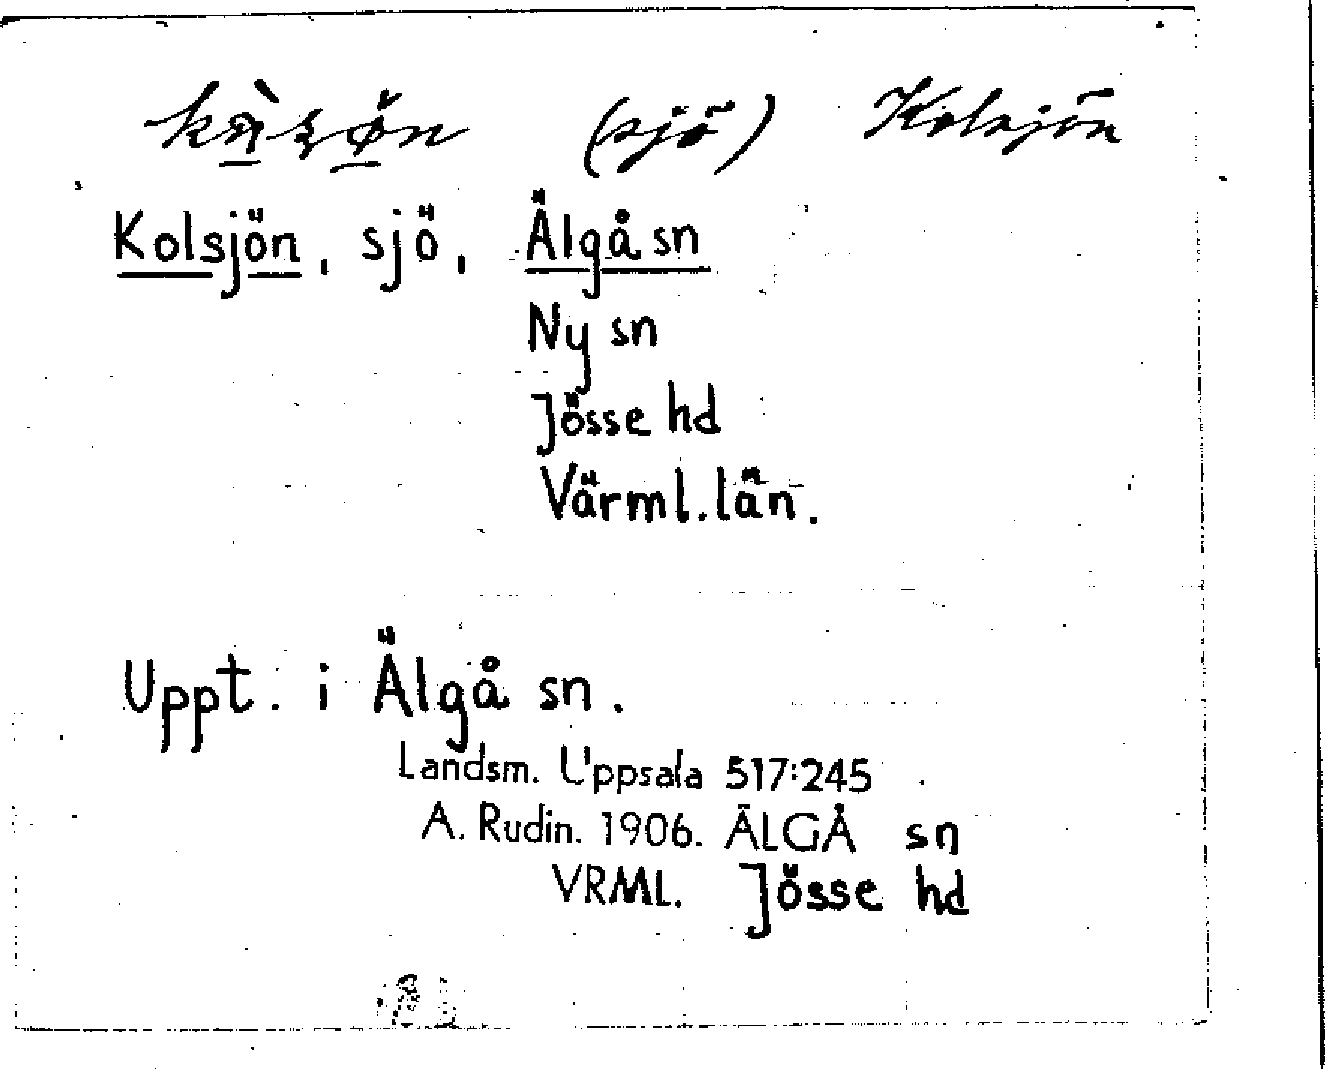 (sjö) Kolsjön
Kolsjön, sjö, Älgå sn
Ny sn
Jösse hd
Värml. län.
Uppt. i Älgå sn.
Landsm. Uppsala 517:245
A. Rudin. 1906. ÄLGÅ sn
VRML. Jösse hd